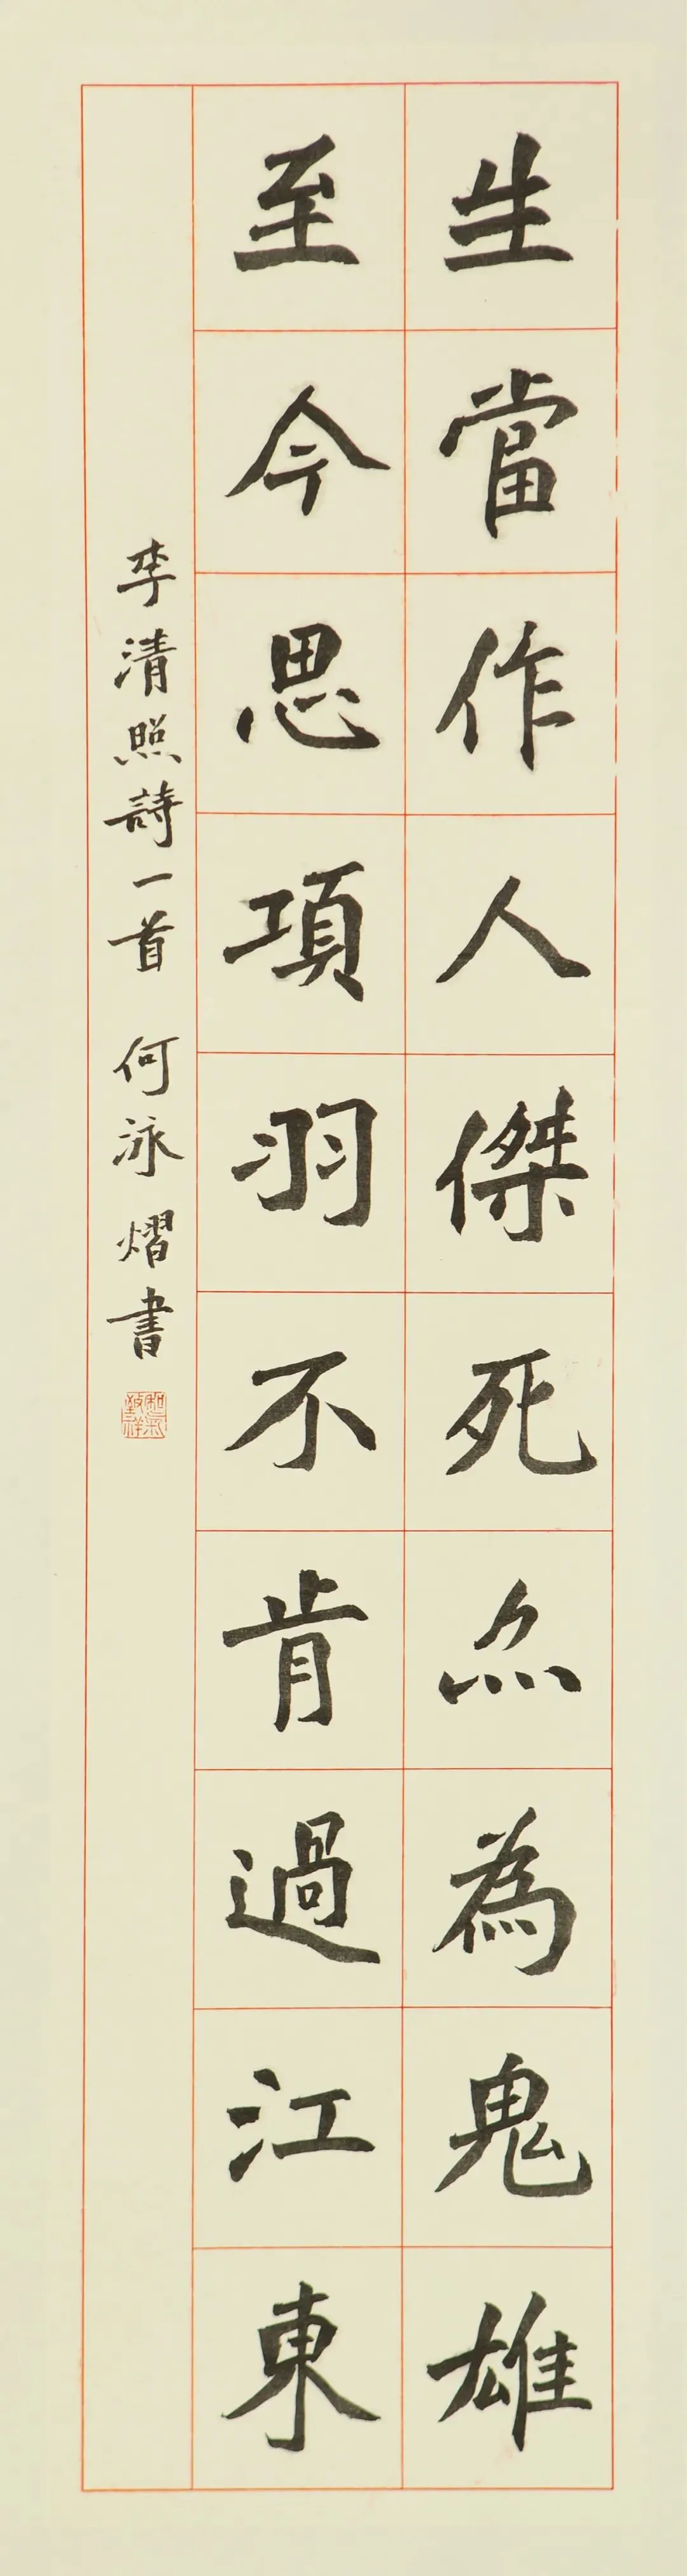 生當作人傑死亦為鬼雄
至今思項羽不肯過江東
李清照詩一首 何泳熠書